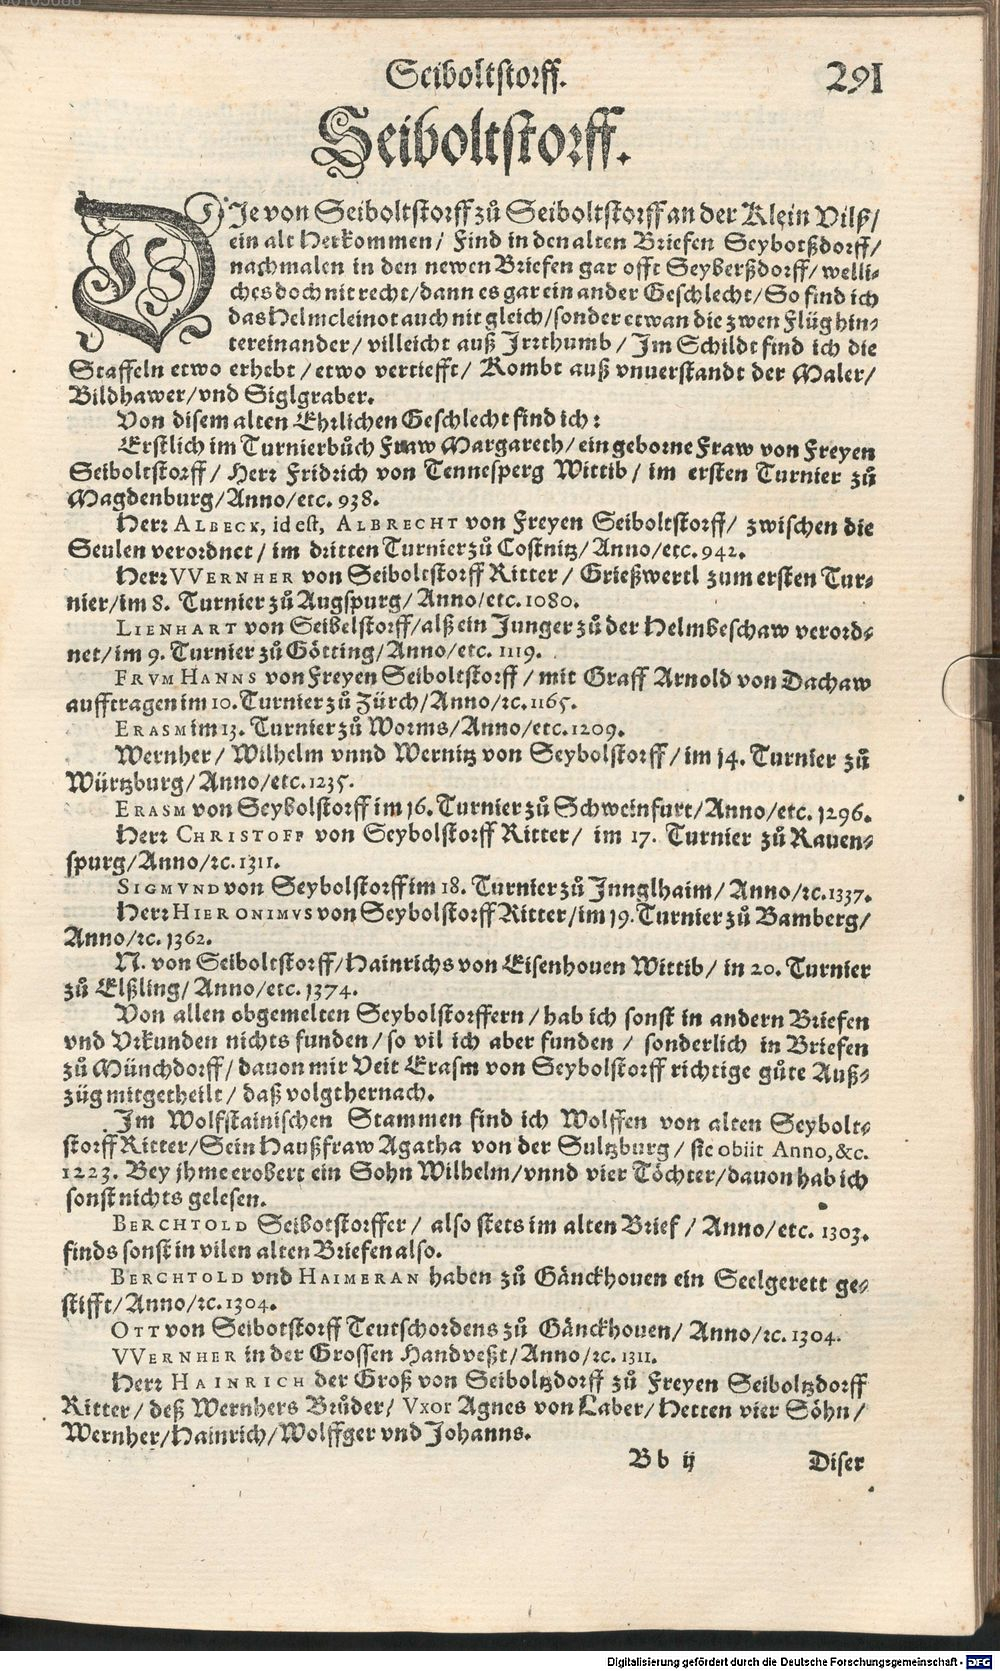 Seiboltstorff. 291
Seiboltstorff.
DIe von Seiboltstorff zů Seiboltstorff an der Klein Vilß/
ein alt Herkommen/ Find in den alten Briefen Seybotßdorff/
nachmalen in den newen Briefen gar offt Seyberßdorff/ welli-
ches doch nit recht/ dann es gar ein ander Geschlecht/ So find ich
das Helmcleinot auch nit gleich/ sonder etwan die zwen Flüg hin-
tereinander/ villeicht auß Irrthumb/ Im Schildt find ich die
Staffeln etwo erhebt/ etwo vertiefft/ Kombt auß vnuerstandt der Maler/
Bildhawer/ vnd Siglgraber.
Von disem alten Ehrlichen Geschlecht find ich:
Erstlich im Turnierbůch Fraw Margareth/ ein geborne Fraw von Freyen
Seiboltstorff/ Herr Fridrich von Tennesperg Wittib/ im ersten Turnier zů
Magdenburg/ Anno/ etc. 938.
Herr ALBECK, id est, ALBRECHT von Freyen Seiboltstorff/ zwischen die
Seulen verordnet/ im dritten Turnier zů Costnitz/ Anno/ etc. 942.
Herr VVERNHER von Seiboltstorff Ritter/ Grießwertl zum ersten Tur-
nier/ im 8. Turnier zů Augspurg/ Anno/ etc. 1080.
LIENHART von Seibelstorff/ alß ein Junger zů der Helmbeschaw verord-
net/ im 9. Turnier zů Götting/ Anno/ etc. 1119.
FRVM HANNS von Freyen Seiboltstorff/ mit Graff Arnold von Dachaw
aufftragen im 10. Turnier zů Zürch/ Anno/ ꝛc. 1165.
ERASM im 13. Turnier zů Worms/ Anno/ etc. 1209.
Wernher/ Wilhelm vnnd Wernitz von Seybolstorff/ im 14. Turnier zů
Würtzburg/ Anno/ etc. 1235.
ERASM von Seybolstorff im 16. Turnier zů Schweinfurt/ Anno/ etc. 1296.
Herr CHRISTOFF von Seybolstorff Ritter/ im 17. Turnier zů Rauen-
spurg/ Anno/ ꝛc. 1311.
SIGMVND von Seybolstorff im 18. Turnier zů Innglhaim/ Anno/ ꝛc. 1337.
Herr HIERONIMVS von Seybolstorff Ritter/ im 19. Turnier zů Bamberg/
Anno/ ꝛc. 1362.
N. von Seiboltstorff/ Hainrichs von Eisenhouen Wittib/ in 20. Turnier
zů Elßling/ Anno/ etc. 1374.
Von allen obgemelten Seybolstorffern/ hab ich sonst in andern Briefen
vnd Vrkunden nichts funden/ so vil ich aber funden/ sonderlich in Briefen
zů Münchdorff/ dauon mir Veit Erasm von Seybolstorff richtige gůte Auß-
züg mitgetheilt/ daß volgt hernach.
Im Wolfstainischen Stammen find ich Wolffen von alten Seybolt-
storff Ritter/ Sein Haußfraw Agatha von der Sultzburg/ sie obiit Anno, &c.
1223. Bey jhme erobert ein Sohn Wilhelm/ vnnd vier Töchter/ dauon hab ich
sonst nichts gelesen.
BERCHTOLD Seibotstorffer/ also stets im alten Brief/ Anno/ etc. 1303.
finds sonst in vilen alten Briefen also.
BERCHTOLD vnd HAIMERAN haben zů Gänckhouen ein Seelgerett ge-
stifft/ Anno/ ꝛc. 1304.
OTT von Seibotstorff Teutschordens zů Gänckhouen/ Anno/ ꝛc. 1304.
VVERNHER in der Grossen Handveßt/ Anno/ ꝛc. 1311.
Herr HAINRICH der Groß von Seiboltzdorff zů Freyen Seiboltzdorff
Ritter/ deß Wernhers Brůder/ Vxor Agnes von Laber/ Hetten vier Söhn/
Wernher/ Hainrich/ Wolffger vnd Johanns.
Bb ij Diser
Digitalisierung gefördert durch die Deutsche Forschungsgemeinschaft - DFG